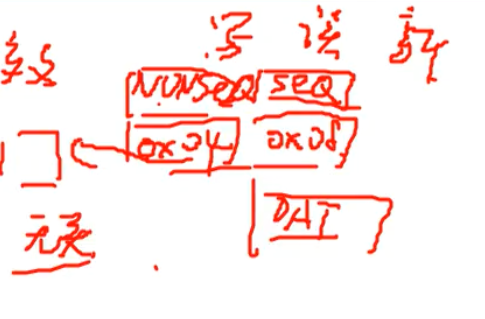 写 读
NONSEQ SEQ
0x04 0x08
DAT
无关